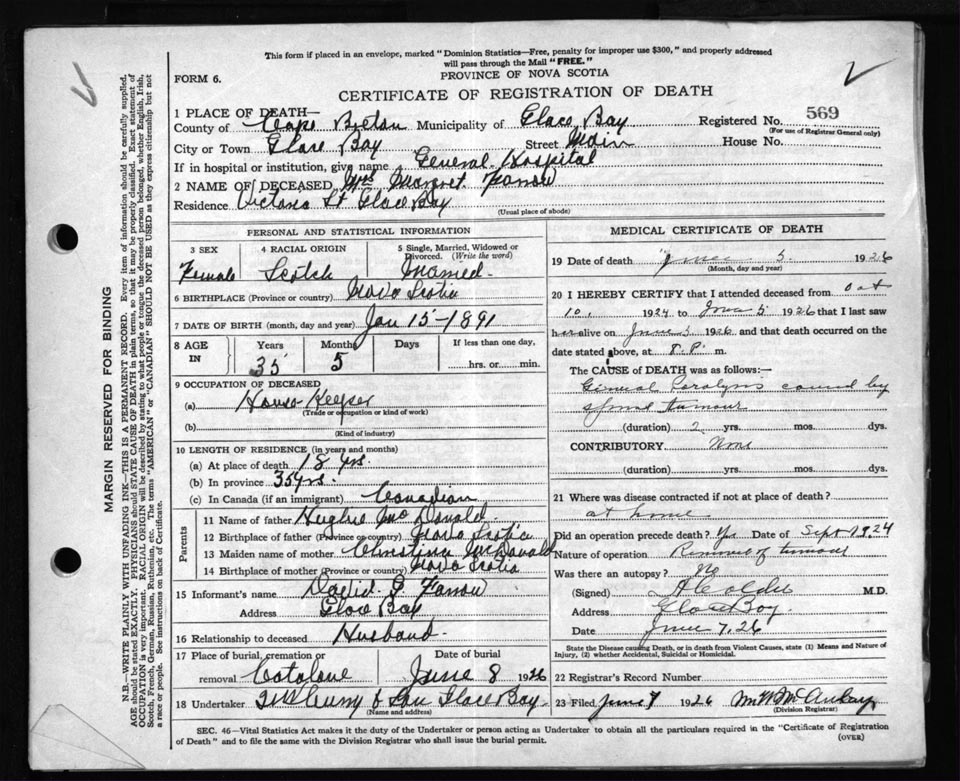 This form if placed in an envelope, marked "Dominion Statistics—Free, penalty for improper use $300," and properly addressed
will pass through the Mail "FREE."
PROVINCE OF NOVA SCOTIA
FORM 6.
CERTIFICATE OF REGISTRATION OF DEATH
1 PLACE OF DEATH—
County of Cape Breton Municipality of Glace Bay Registered No. 569
(For use of Registrar General only)
City or Town Glace Bay Street Main House No.
If in hospital or institution, give name General Hospital
2 NAME OF DECEASED Mrs Margret Farrow
Residence Victoria St Glace Bay
(Usual place of abode)
PERSONAL AND STATISTICAL INFORMATION
3 SEX 4 RACIAL ORIGIN 5 Single, Married, Widowed or Divorced. (Write the word)
Female Scotch Married
6 BIRTHPLACE (Province or country) Nova Scotia
7 DATE OF BIRTH (month, day and year) Jan 15-1891
8 AGE IN Years Months Days If less than one day,
35 5 hrs. or min.
9 OCCUPATION OF DECEASED
(a) House-Keeper
(Trade or occupation or kind of work)
(b)
(Kind of industry)
10 LENGTH OF RESIDENCE (in years and months)
(a) At place of death 18 yrs.
(b) In province 35 yrs.
(c) In Canada (if an immigrant) Canadian
Parents
11 Name of father Hughie McDonald
12 Birthplace of father (Province or country) Nova Scotia
13 Maiden name of mother Christina McDonald
14 Birthplace of mother (Province or country) Nova Scotia
15 Informant's name David G Farrow
Address Glace Bay
16 Relationship to deceased Husband.
17 Place of burial, cremation or Date of burial
removal Catalone June 8 1926
18 Undertaker & Son Glace Bay
(Name and address)
MEDICAL CERTIFICATE OF DEATH
19 Date of death June 5. 1926
(Month, day and year)
20 I HEREBY CERTIFY that I attended deceased from Oct
10, 1924 to June 5 1926 that I last saw
her alive on June 5 1926 and that death occurred on
date stated above, at 8.P. m.
The CAUSE of DEATH was as follows:—
General Paralysis caused by
spinal tumour
(duration) 2 yrs. mos. dys.
CONTRIBUTORY. None
(duration) yrs. mos. dys.
21 Where was disease contracted if not at place of death?
at home
Did an operation precede death? Yes Date of Sept 1924
Nature of operation Removal of tumour
Was there an autopsy? No
(Signed) M.D.
Address Glace Bay.
Date June 7, 26
State the Disease causing Death, or in death from Violent Causes, state (1) Means and Nature of
Injury, (2) whether Accidental, Suicidal or Homicidal.
22 Registrar's Record Number
23 Filed June 7 1926
(Division Registrar)
SEC. 46—Vital Statistics Act makes it the duty of the Undertaker or person acting as Undertaker to obtain all the particulars required in the "Certificate of Registration
of Death" and to file the same with the Division Registrar who shall issue the burial permit.
(OVER)
MARGIN RESERVED FOR BINDING
N.B.—WRITE PLAINLY WITH UNFADING INK—THIS IS A PERMANENT RECORD. Every item of information should be carefully supplied.
AGE should be stated EXACTLY. PHYSICIANS should STATE CAUSE OF DEATH in plain terms, so that it may be properly classified. Exact statement of
OCCUPATION is very important. RACIAL ORIGIN will be described by stating to what people or tongue the deceased person belonged, whether English, Irish,
Scotch, French, German, Russian, Ruthenian, etc. The terms "AMERICAN" or "CANADIAN" SHOULD NOT BE USED as they express citizenship but not
a race or people. See instructions on back of Certificate.